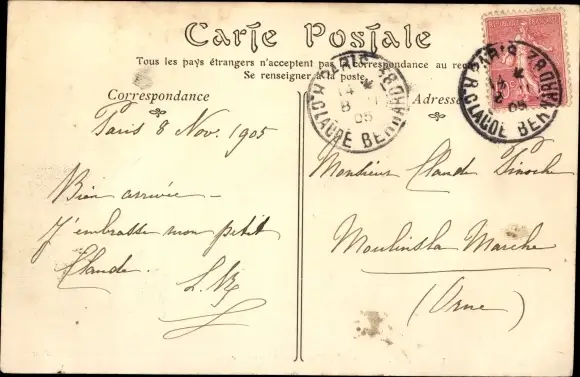 Carte Postale
Tous les pays étrangers n'acceptent pas la correspondance au recto
Se renseigner à la poste
Correspondance
Adresse
PARIS 78
R. CLAUDE BERNARD
8
05
PARIS 78
R. CLAUDE BERNARD
8
05
Paris 8 Nov. 1905
Bien arrivée –
J'embrasse mon petit
Claude.
Monsieur Claude
Moulins la Marche
(Orne)